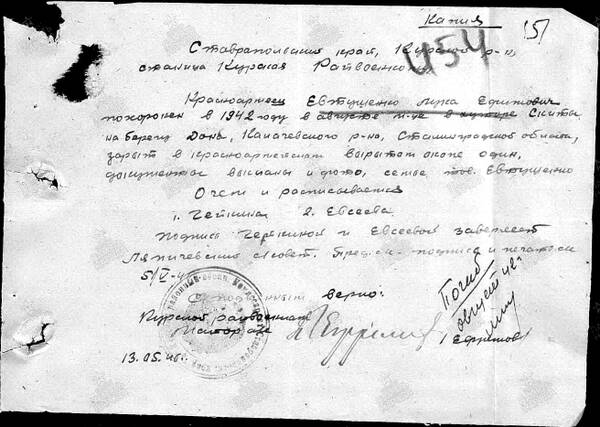 Капия
15)
454
Ставрапольский край, Курской р-н,
станица Курская Райвоенкому
Красноармеец Евтушенко Лука Ефимович
похоронен в 1942 году в августе м-це в хуторе Скиты
на берегу Дона, Калачевского р-на, Сталинградской области,
зарыт в красноармейском вырытом окопе один,
документы высланы и фото, семье тов. Евтушенко
О чем и расписываемся
1. Чепкина 2. Евсеева.
Подпись и Евсеевой заверяет
Ляпичевский с/совет. Пред. с/с - подпись и печать
5/V-4
верно:
Курской райвоенком
Майор
13.05.46г.
Погиб
август 42г.
Ефремов